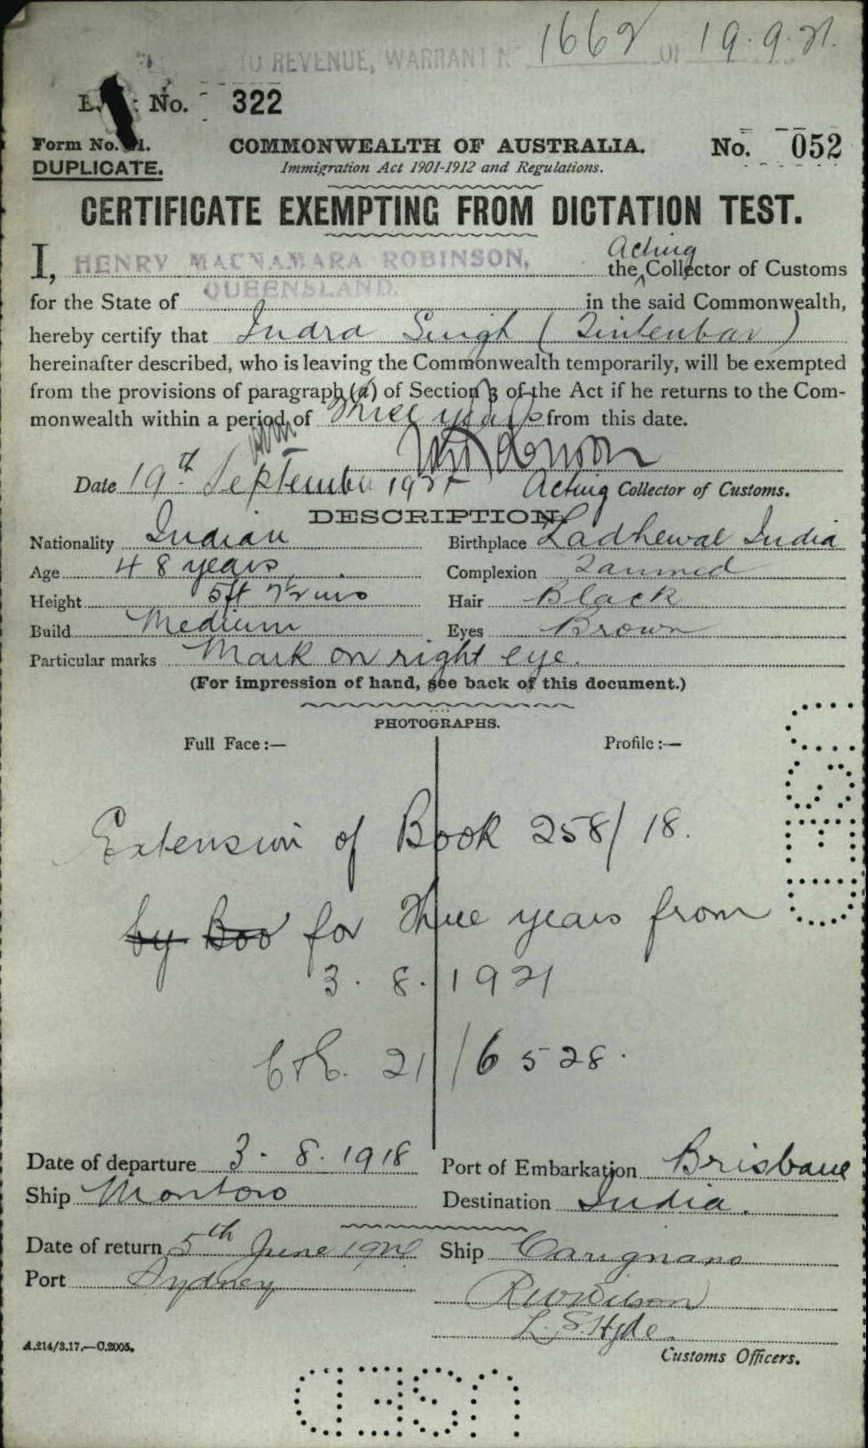 TO REVENUE, WARRANT No 1662 OF 19.9.21.
No. 322
Form No. 21.
COMMONWEALTH OF AUSTRALIA.
No. 052
DUPLICATE.
Immigration Act 1901-1912 and Regulations.
CERTIFICATE EXEMPTING FROM DICTATION TEST.
Acting
I, HENRY MACNAMARA ROBINSON, the Collector of Customs
for the State of QUEENSLAND. in the said Commonwealth,
hereby certify that Indra Singh (Tintenbar)
hereinafter described, who is leaving the Commonwealth temporarily, will be exempted
from the provisions of paragraph (a) of Section 3 of the Act if he returns to the Com-
monwealth within a period of Three years from this date.
Date 19th September 1921 Acting Collector of Customs.
DESCRIPTION
Nationality Indian Birthplace Ladhewal India
Age 48 years Complexion Tanned
Height 5ft 7½ins Hair Black
Build Medium Eyes Brown
Particular marks Mark on right eye.
(For impression of hand, see back of this document.)
PHOTOGRAPHS.
Full Face:— Profile:—
Extension of Book 258/18.
by Boo for Three years from
3.8.1921
C&E. 21/16528.
Date of departure 3.8.1918 Port of Embarkation Brisbane
Ship Montoro Destination India.
Date of return 5th June 1924 Ship Carignano
Port Sydney
L. S. Hyde
A.214/3.17.—C.2005.
Customs Officers.
USED